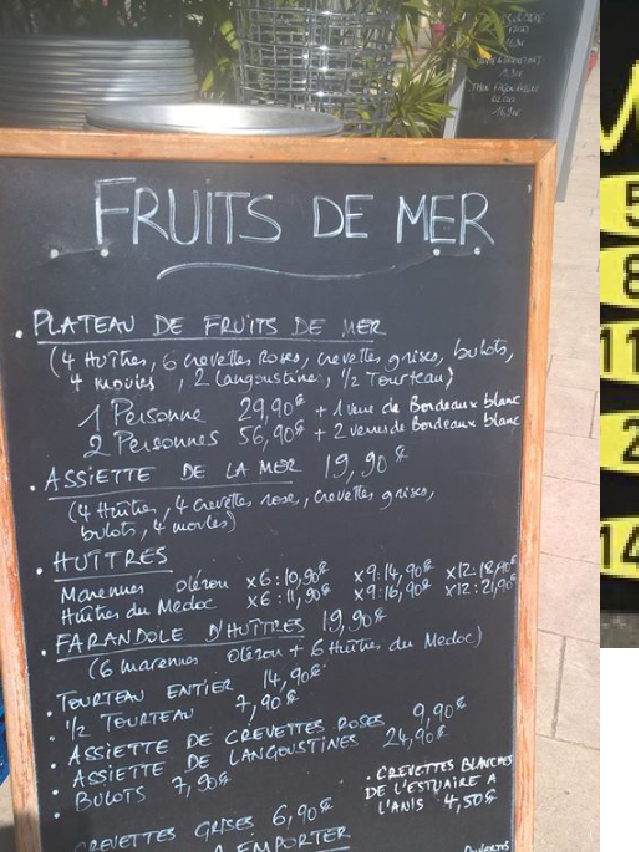 FRUITS DE MER
. PLATEAU DE FRUITS DE MER
(4 Huîtres, 6 crevettes Roses, crevettes grises, bulots,
4 moules , 2 Langoustines, 1/2 Tourteau)
1 Personne 29,90€ + 1 verre de Bordeaux blanc
2 Personnes 56,90€ + 2 verres de Bordeaux blanc
. ASSIETTE DE LA MER 19,90€
(4 Huîtres, 4 crevettes roses, crevettes grises,
bulots, 4 moules)
. HUÎTRES
Marennes Oléron x6: 10,90€ x9: 14,90€ x12: 18,90€
Huîtres du Medoc x6: 11,90€ x9: 16,90€ x12: 21,90€
. FARANDOLE D'HUÎTRES 19,90€
(6 marennes Oléron + 6 Huîtres du Medoc)
. TOURTEAU ENTIER 14,90€
. 1/2 TOURTEAU 7,90€
. ASSIETTE DE CREVETTES ROSES 9,90€
. ASSIETTE DE LANGOUSTINES 24,90€
. BULOTS 7,90€
. CREVETTES BLANCHES
DE L'ESTUAIRE A
L'ANIS 4,50€
CREVETTES GRISES 6,90€
A EMPORTER
5
8
11
2
14